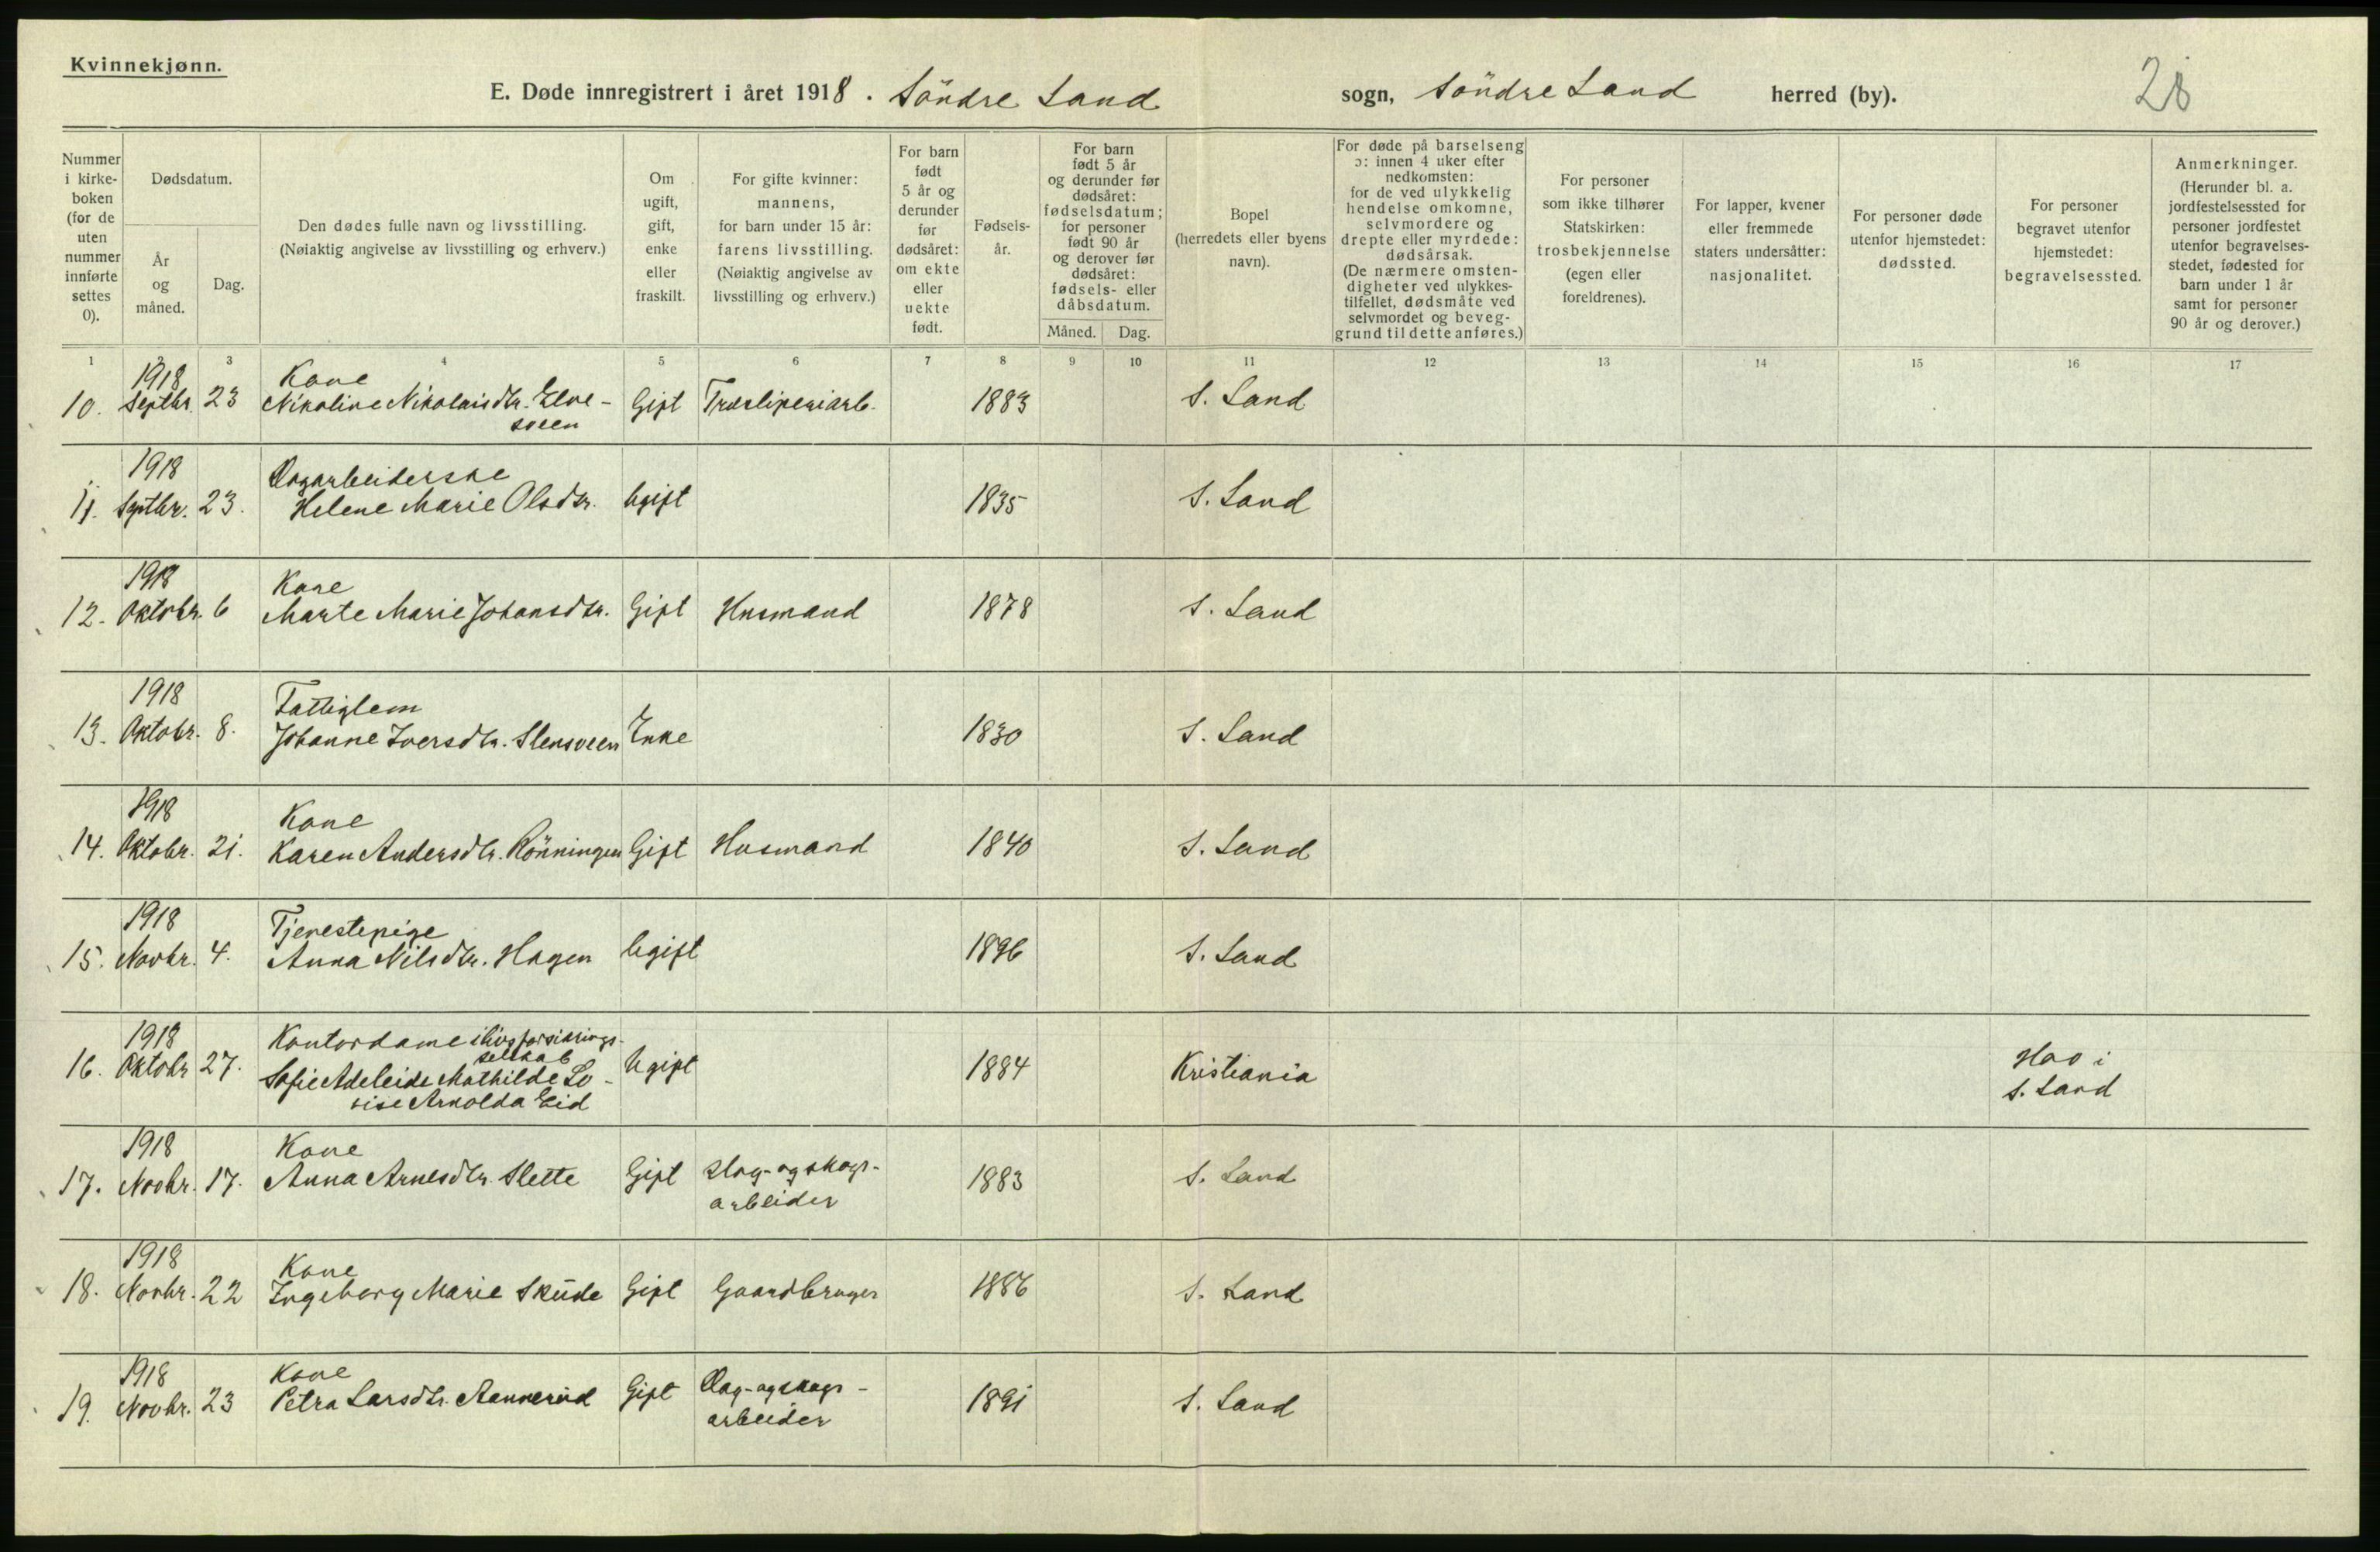 Kvinnekjønn.
E. Døde innregistrert i året 1918. Söndre Land sogn, Söndre Land herred (by).
28
Nummer i kirke-boken (for de uten nummer innførte settes 0).
Dødsdatum.
År og måned.
Dag.
Den dødes fulle navn og livsstilling.
(Nøiaktig angivelse av livsstilling og erhverv.)
Om ugift, gift, enke eller fraskilt.
For gifte kvinner: mannens, for barn under 15 år: farens livsstilling.
(Nøiaktig angivelse av livsstilling og erhverv.)
For barn født 5 år og derunder før dødsåret: om ekte eller uekte født.
Fødsels-år.
For barn født 5 år og derunder før dødsåret: fødselsdatum; for personer født 90 år og derover før dødsåret: fødsels- eller dåbsdatum.
Måned. Dag.
Bopel (herredets eller byens navn).
For døde på barselseng ɔ: innen 4 uker efter nedkomsten: for de ved ulykkelig hendelse omkomne, selvmordere og drepte eller myrdede: dødsårsak. (De nærmere omsten-digheter ved ulykkes-tilfellet, dødsmåte ved selvmordet og beveg-grund til dette anføres.)
For personer som ikke tilhører Statskirken: trosbekjennelse (egen eller foreldrenes).
For lapper, kvener eller fremmede staters undersåtter: nasjonalitet.
For personer døde utenfor hjemstedet: dødssted.
For personer begravet utenfor hjemstedet: begravelsessted.
Anmerkninger. (Herunder bl. a. jordfestelsessted for personer jordfestet utenfor begravelses-stedet, fødested for barn under 1 år samt for personer 90 år og derover.)
1 2 3 4 5 6 7 8 9 10 11 12 13 14 15 16 17
1918 Kone
10. Septbr. 23 Nikoline Nikolaisdtr. Elve- Gift Træsliperiarb. 1883 S. Land
sveen
1918 Dagarbeiderske
11. Septbr. 23. Helene Marie Olsdtr. Ugift 1835 S. Land
1918 Kone
12. Oktobr. 6 Marte Marie Johansdtr. Gift Husmand 1878 S. Land
1918 Fattiglem
13. Oktobr. 8. Johanne Iversdtr. Stensveen Enke 1830 S. Land
1918 Kone
14. Oktobr. 21. Karen Andersdtr. Rönningen Gift Husmand 1840 S. Land
1918 Tjenestepige
15. Novbr. 4. Anna Nilsdtr. Hagen Ugift 1896 S. Land
1918 Kontordame i livsforsikrings-
selskab
16. Oktobr 27. Sofie Adeleide Mathilde Lo- Ugift 1884 Kristiania Hov i
vise Arnolda Eid S. Land
1918 Kone
17. Novbr. 17. Anna Arnesdtr. Slette Gift Dag- og skogs- 1883 S. Land
arbeider
1918 Kone
18. Novbr. 22 Ingeborg Marie Skute Gift Gaardbruger 1886 S. Land
1918 Kone
19. Novbr. 23 Petra Larsdtr. Aannerud Gift Dag- og skogs- 1891 S. Land
arbeider